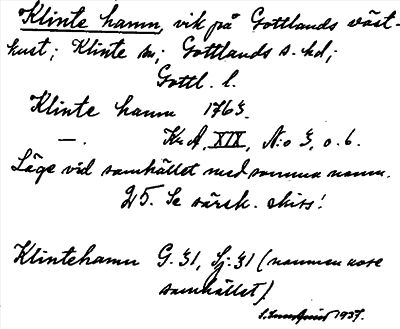 Klinte hamn, vik på Gottlands väst-
kust; Klinte sn; Gottlands s. hd;
Gottl. l.
Klinte hamn 1763.
—. Kr A, XIX, N:o 3, o. 6.
Läge vid samhället med samma namn.
25. Se särsk. skiss!
Klintehamn G. 31, Sj. 31 (namnen avse
samhället).
1937.